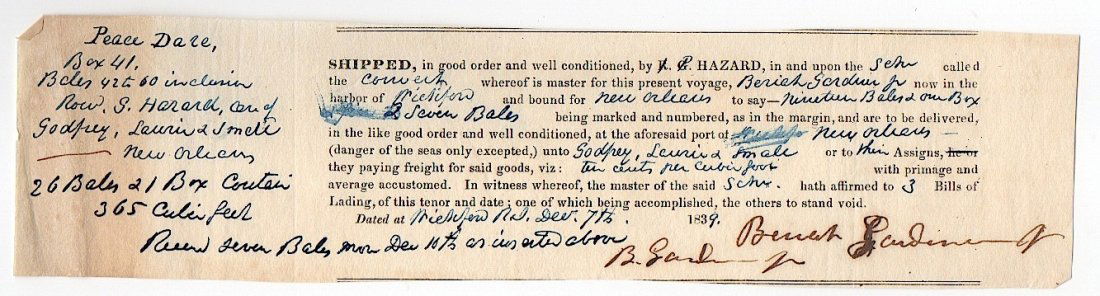 Peace Dare,
Box 41.
Bales 42 to 60 inclusive
Row. G. Hazard, 
Godfrey, Laurie & Small
New Orleans
26 Bales & 1 Box Contain
365 Cubic feet
Recvd seven Bales more Dec 10th as inserted above
SHIPPED, in good order and well conditioned, by HAZARD, in and upon the Schr called
the Convert whereof is master for this present voyage, Beriah Gardner Jr now in the
harbor of Wickford and bound for New Orleans to say—Nineteen Bales & one Box
& Seven Bales being marked and numbered, as in the margin, and are to be delivered,
in the like good order and well conditioned, at the aforesaid port of New Orleans —
(danger of the seas only excepted,) unto Godfrey, Laurie & Small or to their Assigns, he or
they paying freight for said goods, viz: ten cents per cubic foot with primage and
average accustomed. In witness whereof, the master of the said Schr. hath affirmed to 3 Bills of
Lading, of this tenor and date; one of which being accomplished, the others to stand void.
Dated at Wickford R.I. Dec. 7th. 1839.
Beriah Gardiner Jr
B. Gardiner Jr